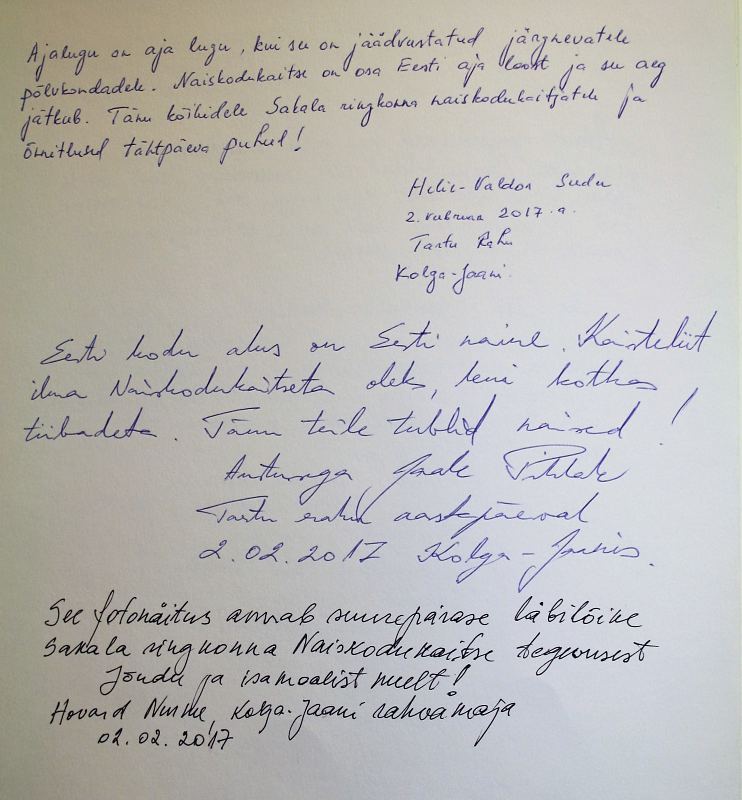 Ajalugu on aja lugu, kui see on jäädvustatud järgnevatele
põlvkondadele. Naiskodukaitse on osa Eesti aja loost ja see aeg
jätkub. Tänu kõikidele Sakala ringkonna naiskodukaitsjatele ja
õnnitlused tähtpäeva puhul!
Helir-Valdor Seeder
2. veebruar 2017.a.
Tartu Rahu
Kolga-Jaani
Eesti kodu alus on Eesti naine. Kaitseliit
ilma Naiskodukaitseta oleks, kui kotkas
tiibadeta. Tänu teile tublid naised!
Austusega, Jaak Pihlak
Tartu rahu aastapäeval
2.02.2017 Kolga-Jaanis.
See fotonäitus annab suurepärase läbilõike
Sakala ringkonna Naiskodukaitse tegevusest
Jõudu ja isamaalist meelt!
Hovard Nurme, Kolga-Jaani rahvamaja
02.02.2017